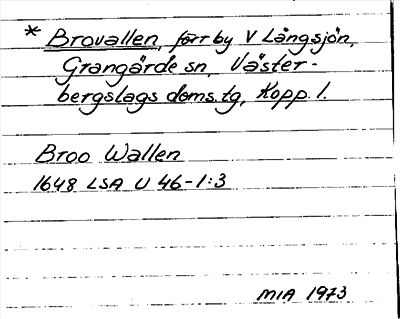 * Brovallen, förr by V Långsjön,
Grangärde sn, Väster-
bergslags doms.tg, Kopp. l.
Broo Wallen
1648 LSA U 46-1:3
MIA 1973